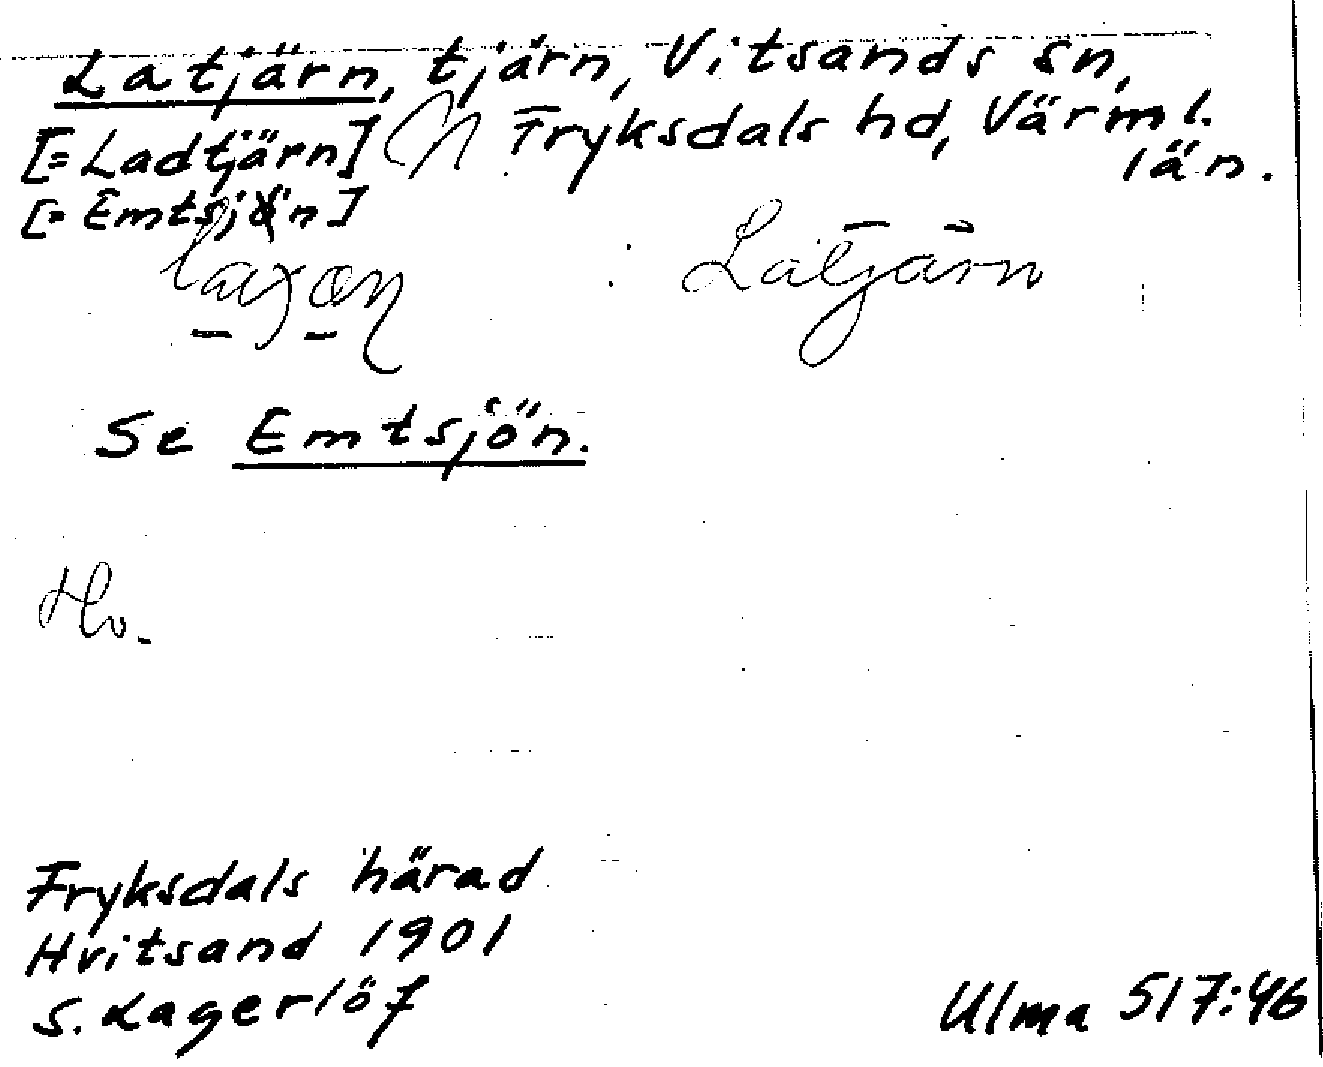 Latjärn, tjärn, Vitsands sn,
[= Ladtjärn] Fryksdals hd, Värml.
län.
[= Emtsjön]
Latjärn
Se Emtsjön.
Ho.
Fryksdals härad
Hvitsand 1901
S. Lagerlöf
Ulma 517:46